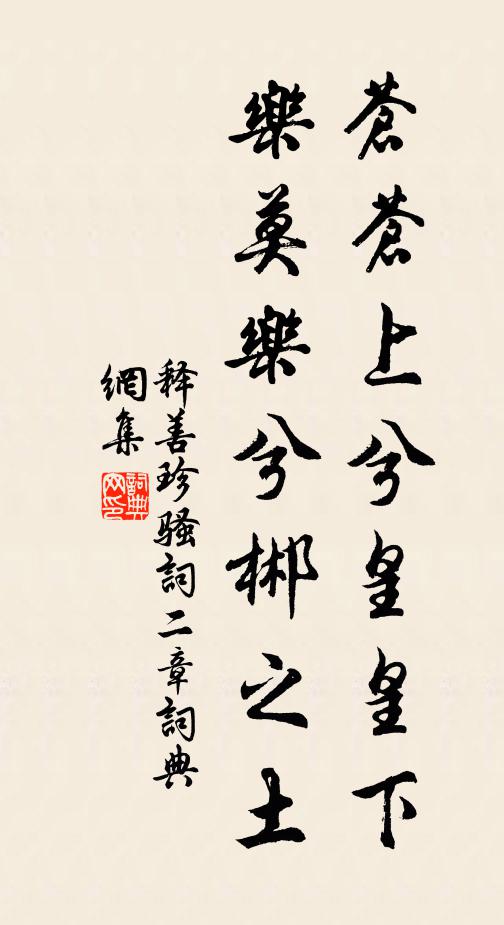 蒼蒼上兮皇皇下
樂莫樂兮郴之土
释善珍骚詞二章詞典
網集
詞典
网印